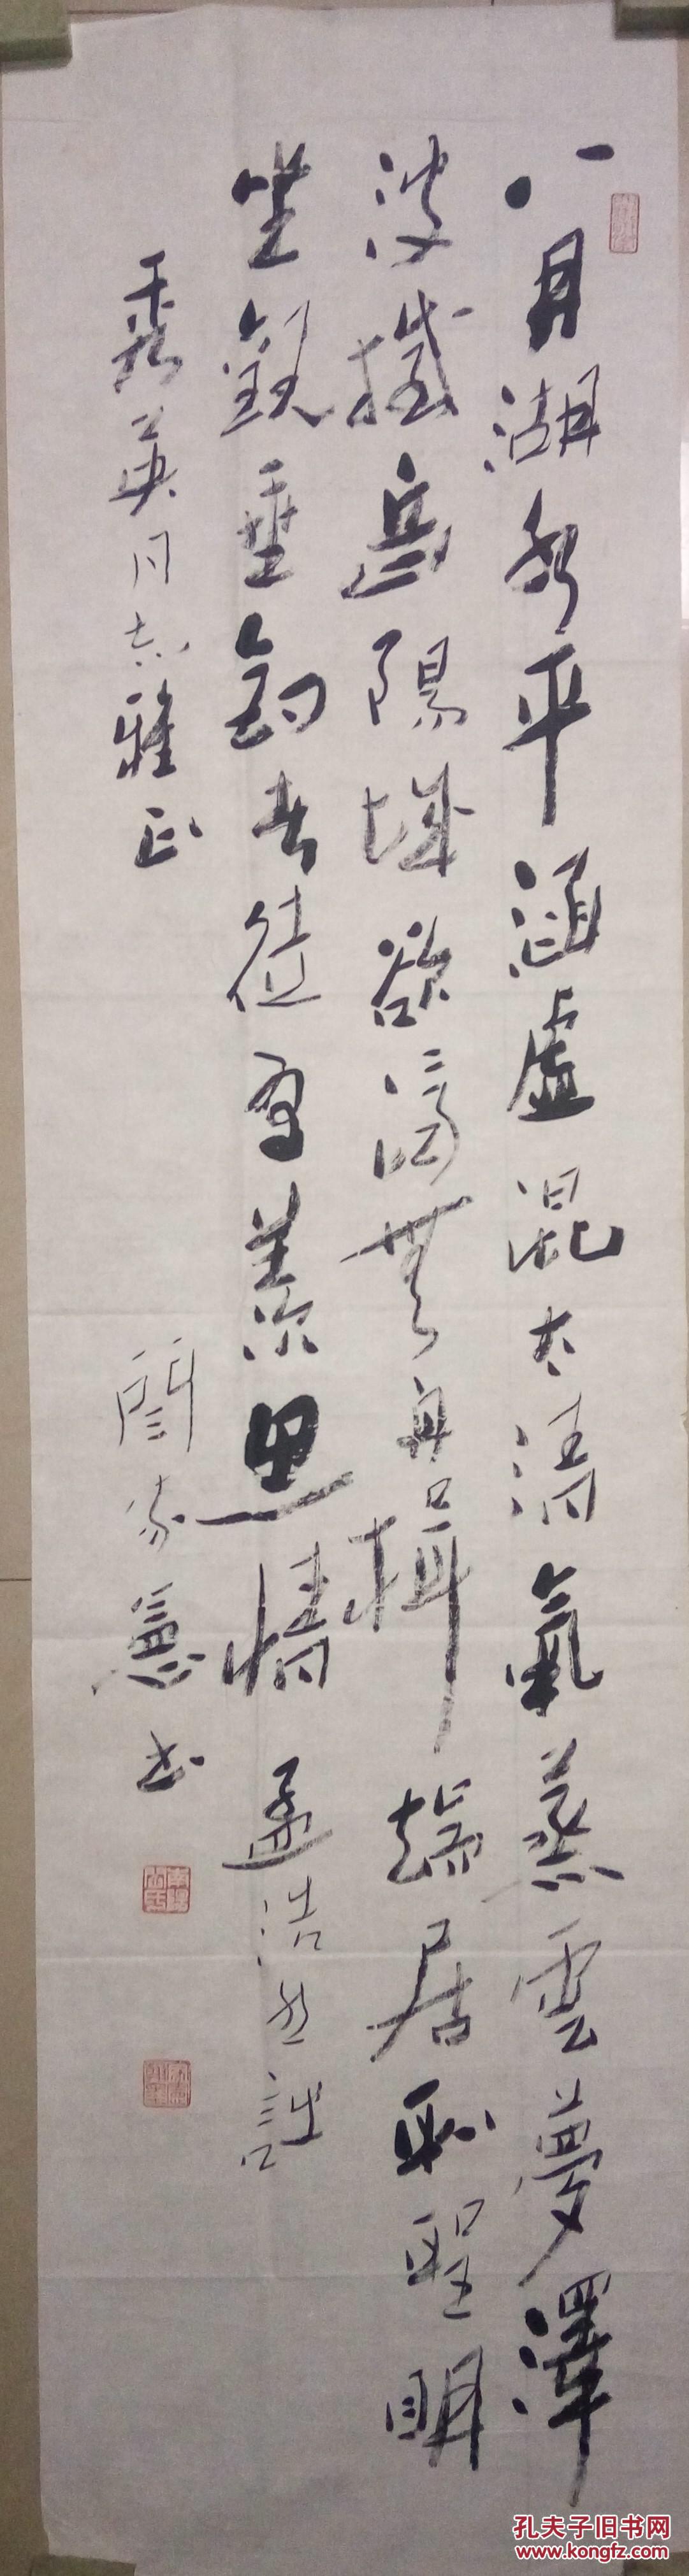 八月湖水平涵虛混太清氣蒸雲夢澤
波撼岳陽城欲濟無舟楫端居恥聖明
坐觀垂釣者徒有羨魚情孟浩然詩
秀英同志雅正
閻家憲书
孔夫子旧书网
www.kongfz.com